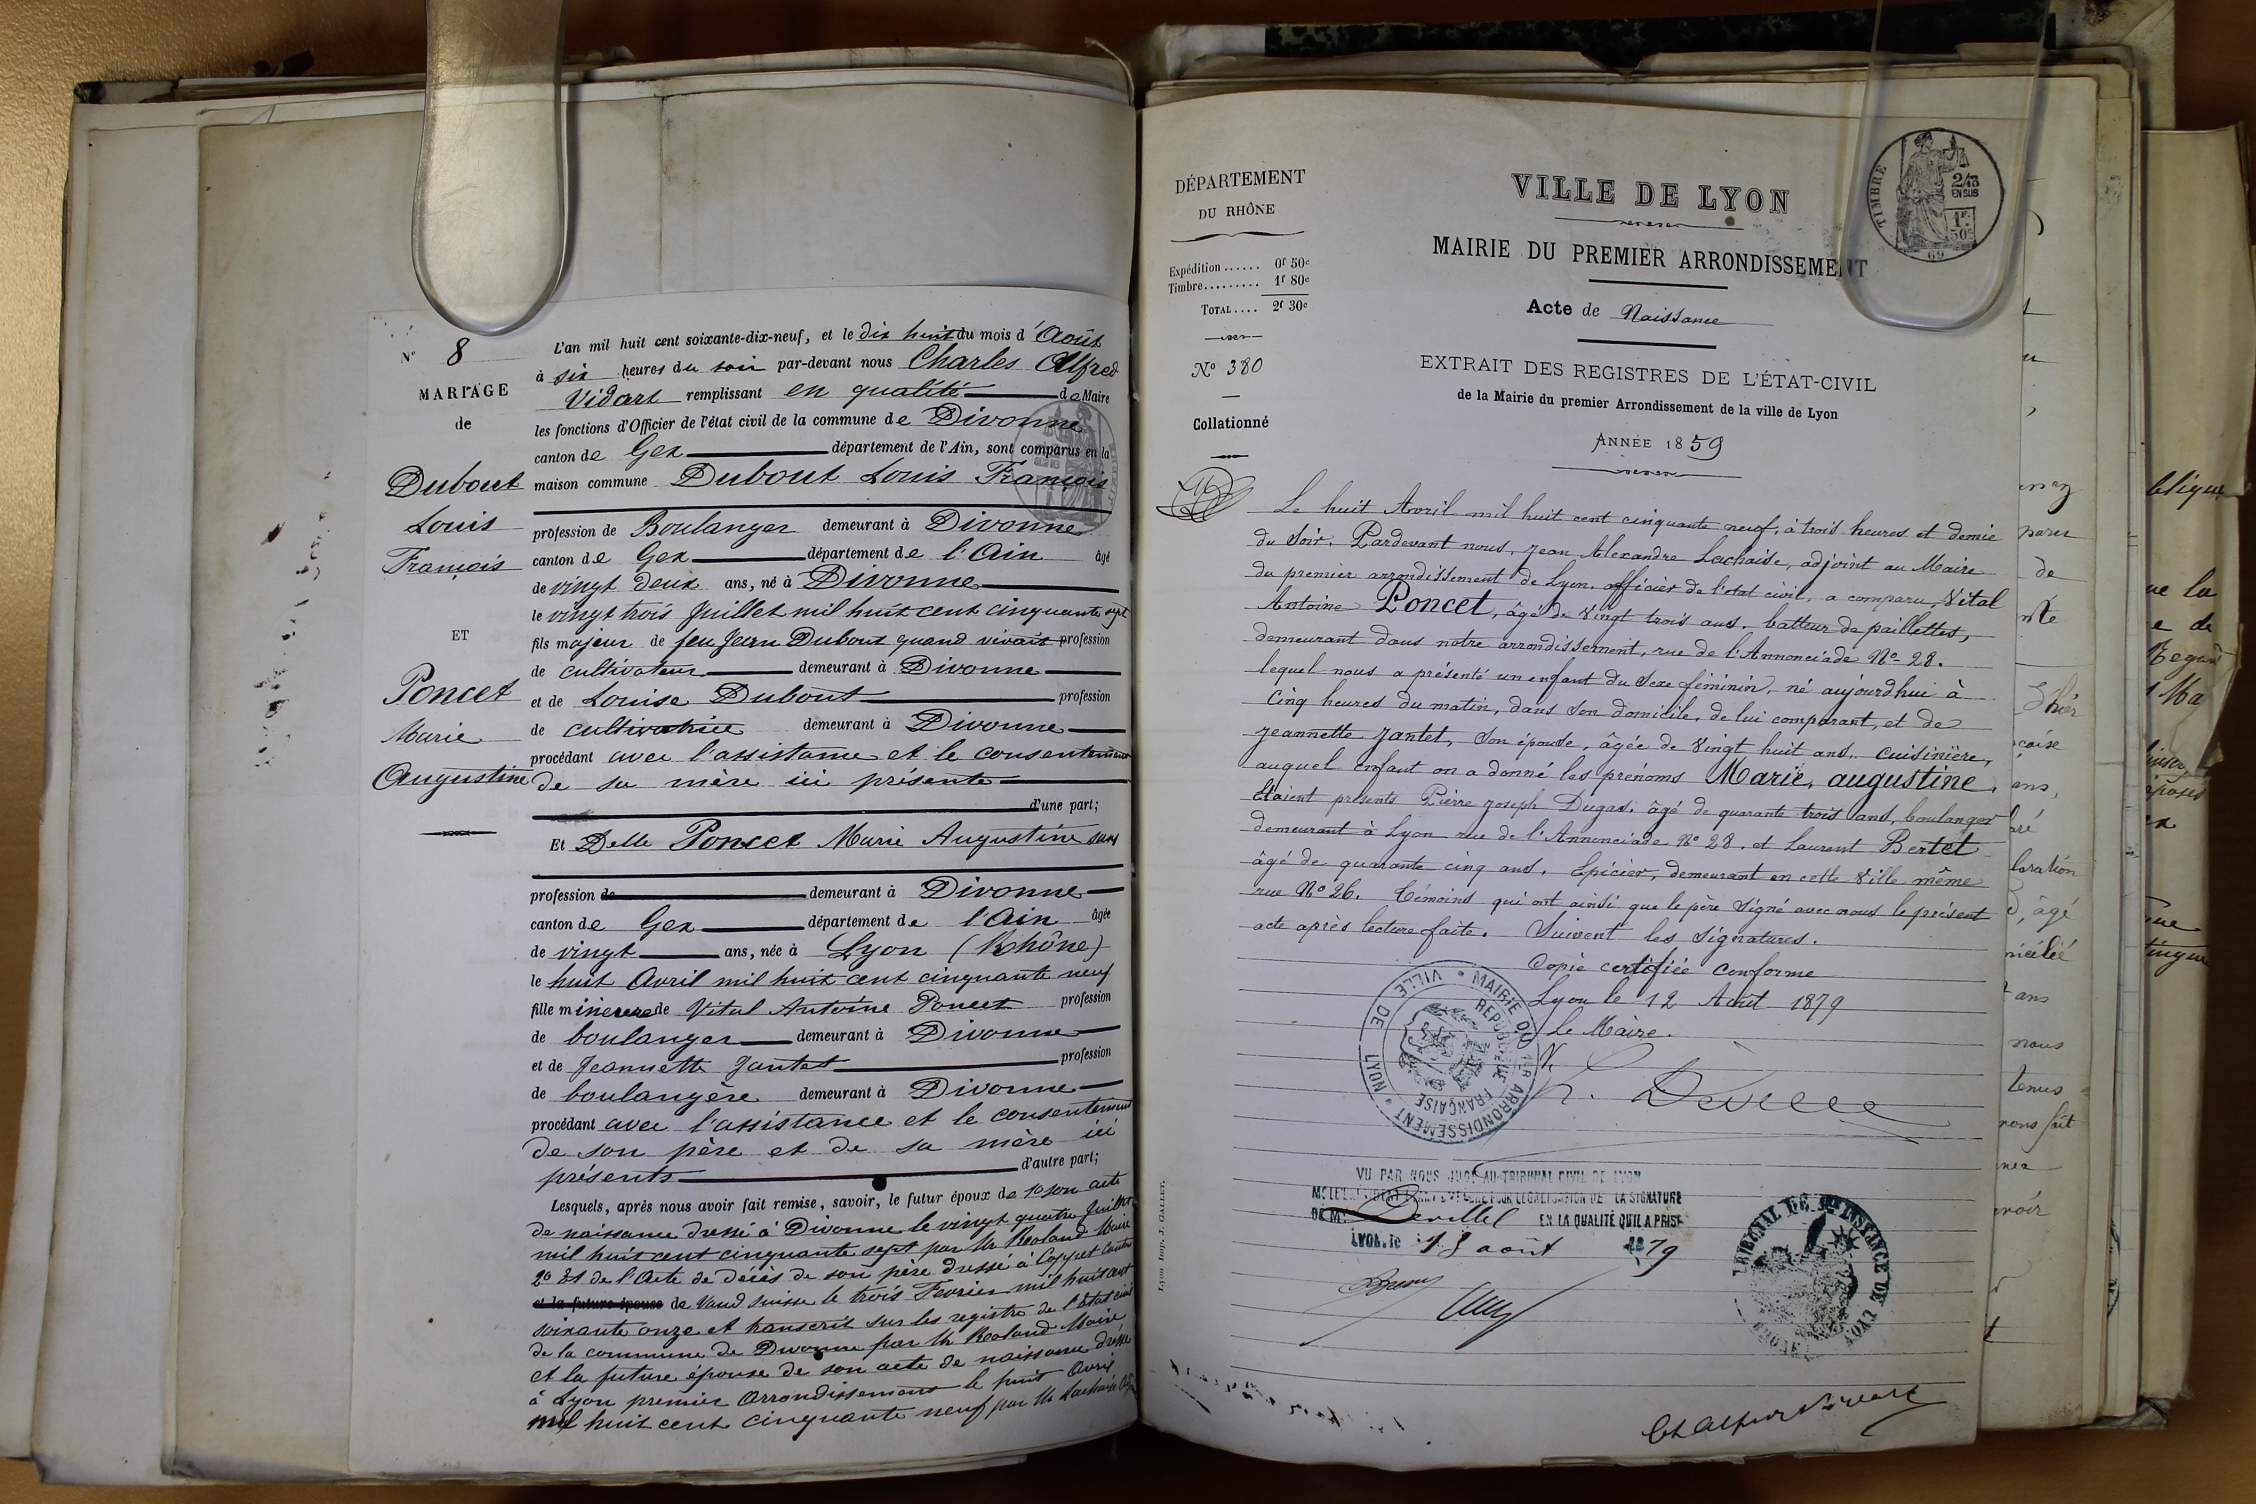 N° 8
MARIAGE
de
Dubout
Louis
François
ET
Poncet
Marie
Augustine
L'an mil huit cent soixante-dix-neuf, et le dix huit du mois d'Août
à six heures du soir par-devant nous Charles Alfred
Vidart remplissant en qualité de Maire
les fonctions d'Officier de l'état civil de la commune de Divonne
canton de Gex département de l'Ain, sont comparus en la
maison commune Dubout Louis François
profession de Boulanger demeurant à Divonne
canton de Gex département de l'Ain âgé
de vingt deux ans, né à Divonne
le vingt trois Juillet mil huit cent cinquante sept
fils majeur de feu Jean Dubout quand vivait profession
de cultivateur demeurant à Divonne
et de Louise Dubout profession
de cultivatrice demeurant à Divonne
procédant avec l'assistance et le consentement
de sa mère ici présente
d'une part;
Et Delle Poncet Marie Augustine sans
profession de demeurant à Divonne
canton de Gex département de l'Ain âgée
de vingt ans, née à Lyon (Rhône)
le huit Avril mil huit cent cinquante neuf
fille mineure de Vital Antoine Poncet profession
de boulanger demeurant à Divonne
et de Jeannette Jantet profession
de boulangère demeurant à Divonne
procédant avec l'assistance et le consentement
de son père et de sa mère ici
présents d'autre part;
Lesquels, après nous avoir fait remise, savoir, le futur époux de 1° son acte
de naissance dressé à Divonne le vingt quatre Juillet
mil huit cent cinquante sept par Mr Roland Maire
2° Et de l'Acte de décès de son père dressé à Coppet Canton
et la future épouse de Vaud Suisse le trois Fevrier mil huit cent
soixante onze et transcrit sur les registre de l'état civil
de la commune de Divonne par Mr Roland Maire
et la future épouse de son acte de naissance dressé
à Lyon premier Arrondissement le huit Avril
mil huit cent cinquante neuf par Mr Lachaise
DÉPARTEMENT
DU RHÔNE
Expédition ...... 0f 50c
Timbre ......... 1f 80c
TOTAL .... 2f 30c
N° 380
Collationné
VILLE DE LYON
MAIRIE DU PREMIER ARRONDISSEMENT
Acte de Naissance
EXTRAIT DES REGISTRES DE L'ÉTAT-CIVIL
de la Mairie du premier Arrondissement de la ville de Lyon
ANNÉE 1859
TIMBRE
2/10
EN SUS
1F.
50c
69
Le huit Avril mil huit cent cinquante neuf, à trois heures et demie
du Soir. Pardevant nous, Jean Alexandre Lachaise, adjoint au Maire
du premier arrondissement de Lyon, officier de l'état civil, a comparu, Vital
Antoine Poncet, âgé de vingt trois ans, batteur de paillettes,
demeurant dans notre arrondissement, rue de l'Annonciade N° 28.
lequel nous a présenté un enfant du Sexe féminin, né aujourdhui à
cinq heures du matin, dans son domicile, de lui comparant, et de
Jeannette Jantet, son épouse, âgée de vingt huit ans, cuisinière,
auquel enfant on a donné les prénoms Marie, augustine.
Etaient présents Pierre Joseph Dugas, âgé de quarante trois ans, boulanger
demeurant à Lyon rue de l'Annonciade N° 28, et Laurent Bertet
âgé de quarante cinq ans, Epicier, demeurant en cette Ville même
rue N° 26. Témoins qui ont ainsi que le père signé avec nous le présent
acte après lecture faite. Suivent les signatures.
Copie certifiée conforme
Lyon le 12 Août 1879
Le Maire.
MAIRIE DU 1ER ARRONDISSEMENT • VILLE DE LYON •
RÉPUBLIQUE FRANÇAISE
VU PAR NOUS JUGE AU TRIBUNAL CIVIL DE LYON
POUR LÉGALISATION DE LA SIGNATURE
DE Mr Devillel EN LA QUALITÉ QU'IL A PRISE
LYON, le 13 août 1879
TRIBUNAL DE 1RE INSTANCE DE LYON
RHÔNE
Ch Alfred Vidart
Lyon Imp. J. GALLET.
blique
de
ans,
laration
âgé
ans
nous
tenus